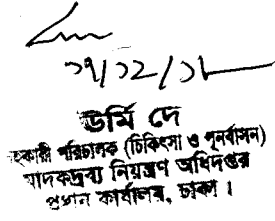 ১৭/১২/১৮
উর্মি দে
সহকারী পরিচালক (চিকিৎসা ও পুনর্বাসন)
মাদকদ্রব্য নিয়ন্ত্রণ অধিদপ্তর
প্রধান কার্যালয়, ঢাকা।